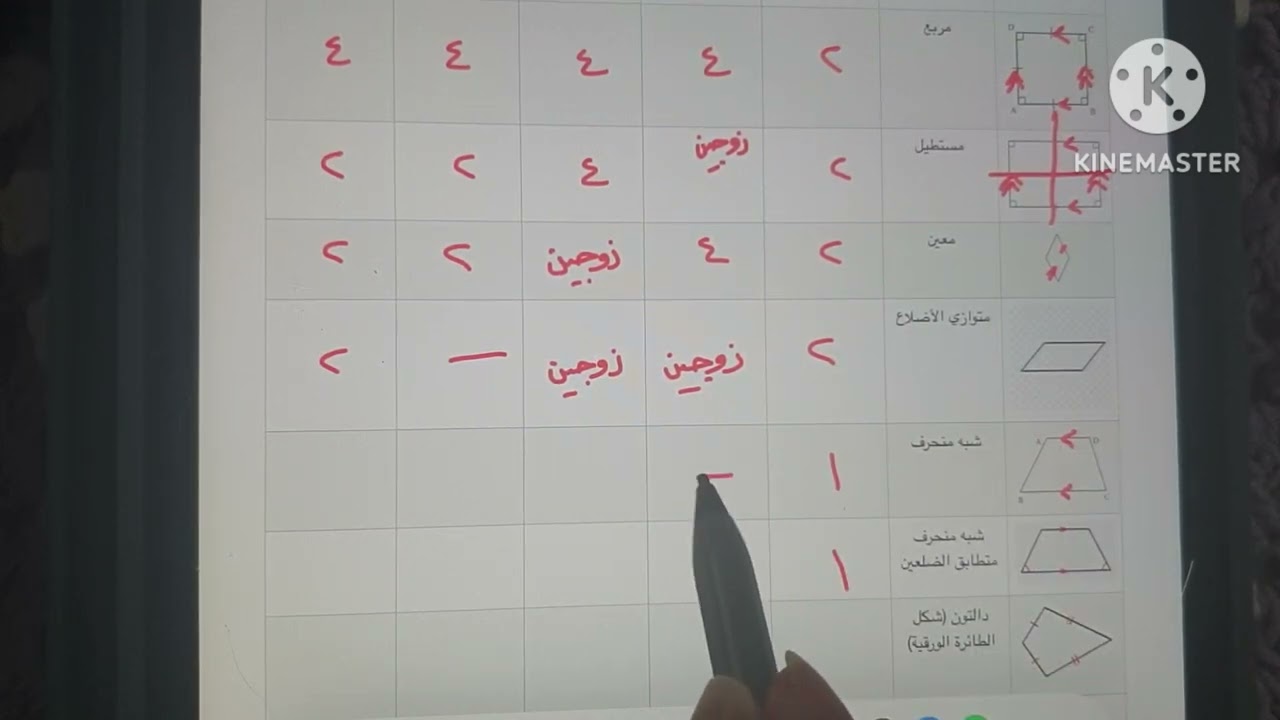 مربع ٢ ٤ ٤ ٤ ٤
KINEMASTER
مستطيل ٢ زوجين ٤ ٢ ٢
معين ٢ ٤ زوجين ٢ ٢
متوازي الأضلاع ٢ زوجين زوجين — ٢
شبه منحرف ١ —
شبه منحرف
متطابق الضلعين ١
دالتون (شكل
الطائرة الورقية)